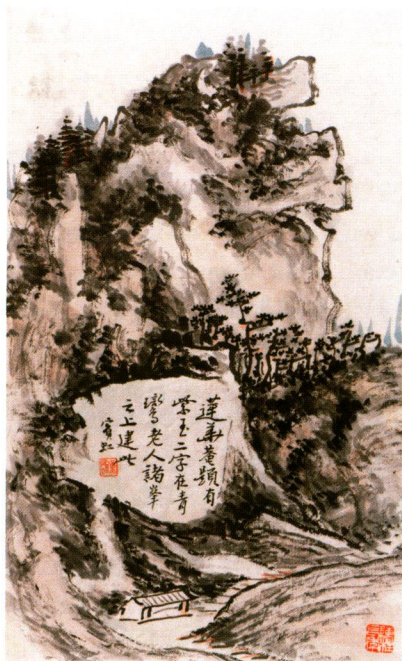 蓮華菴題有
紫玉二字在青
鸞老人諸峯
之上建此
賓虹